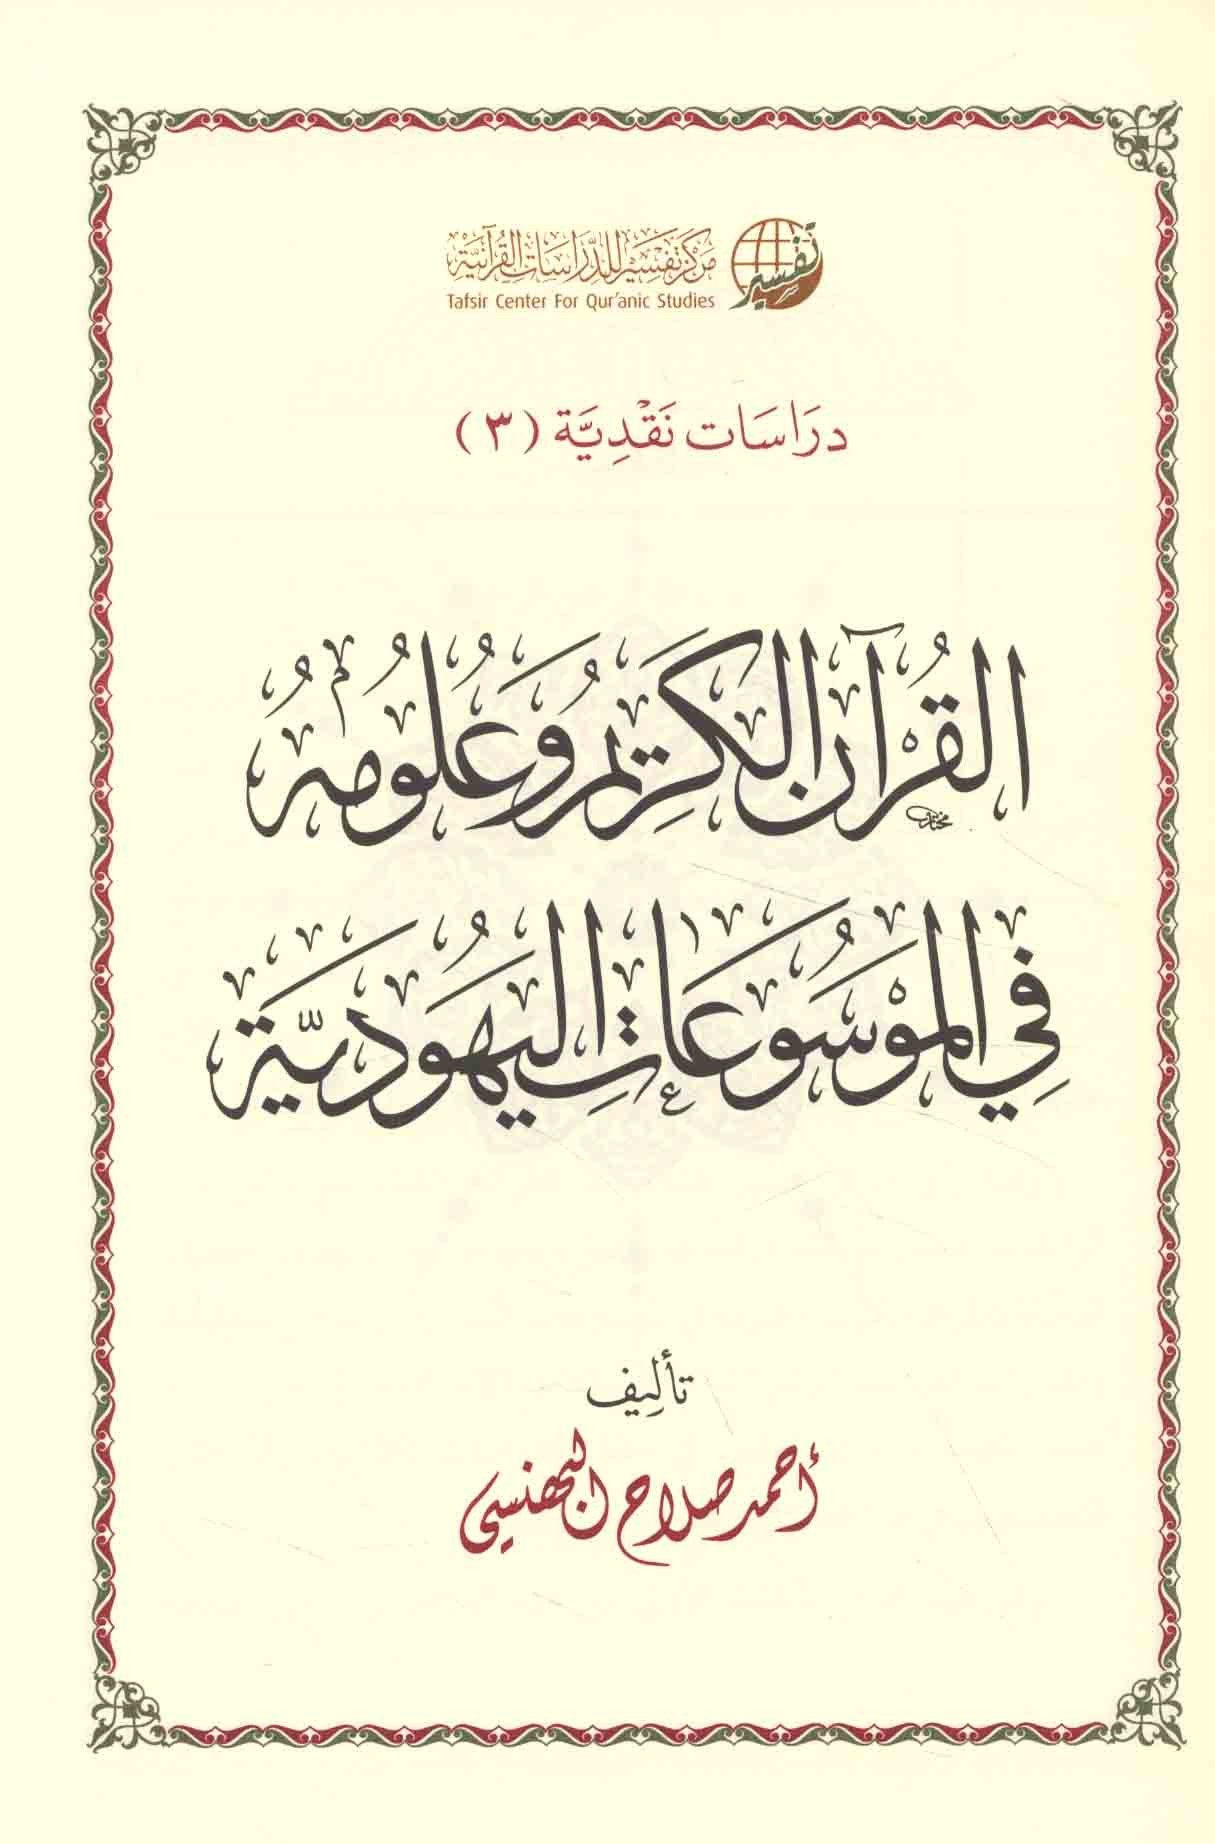 مركز تفسير للدراسات القرآنية
تفسير
Tafsir Center For Qur'anic Studies
دراسات نقدية (٣)
القرآن الكريم وعلومه
في الموسوعات اليهودية
تأليف
أحمد صلاح البهنسي